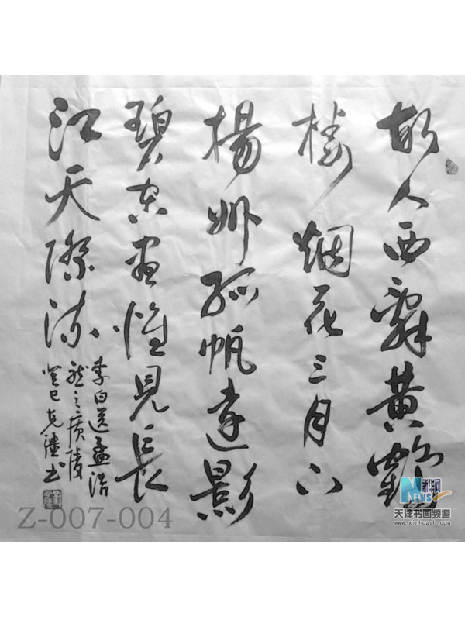 故人西辭黃鶴
樓烟花三月下
楊州孤帆遠影
碧空盡惟見長
江天際流
李白送孟浩
然之廣陵
癸巳克書
Z-007-004
NEWS
天津书画频道